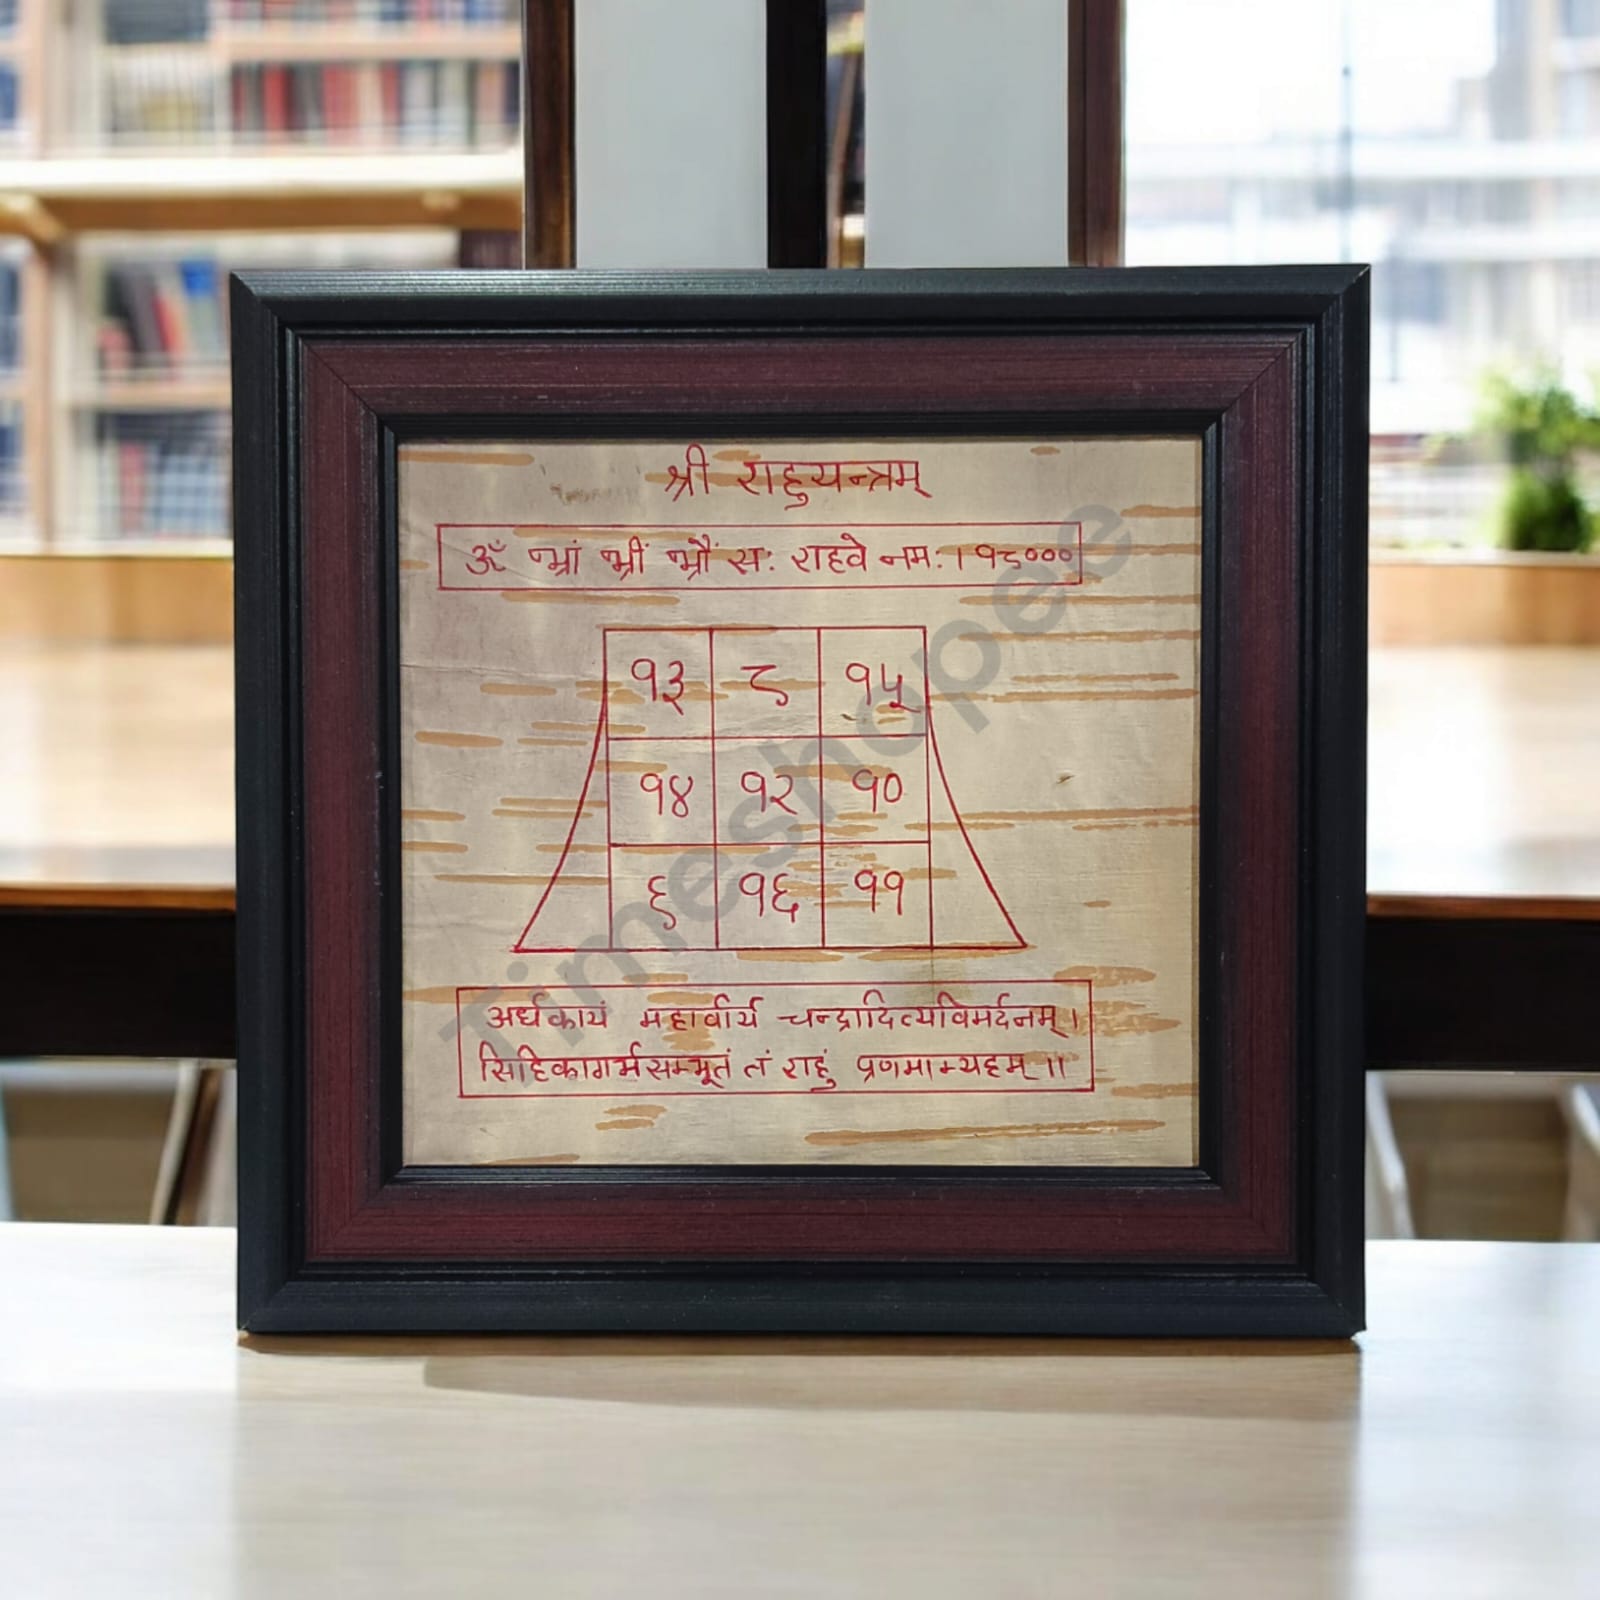 श्री राहुयन्त्रम्
ॐ भ्रां भ्रीं भ्रौं सः राहवे नमः । १८०००
१३ ८ १५
१४ १२ १०
९ १६ ११
अर्धकायं महावीर्य चन्द्रादित्यविमर्दनम् ।
सिहिकागर्भसम्भूतं तं राहुं प्रणमाम्यहम् ॥
Timeshopee